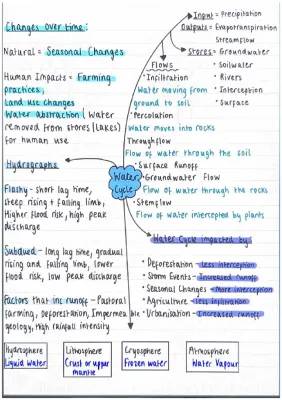 Changes over time:
Natural = Seasonal Changes
Human Impacts = Farming
practices,
Land use changes
Water abstraction (Water
removed from stores (Lakes)
for human use
Input = Precipitation
Outputs = Evapotranspiration
Streamflow
Stores • Groundwater
• Soilwater
• Rivers
• Interception
• Surface
Flows
• Infiltration
Water moving from
ground to soil
• Percolation
Water moves into rocks
Throughflow
Flow of water through the soil
• Surface Runoff
• Groundwater Flow
Flow of water through the rocks
• Stemflow
Flow of water intercepted by plants
Water
Cycle
Hydrographs
Flashy - short lag time,
steep rising + falling limb,
Higher flood risk, high peak
discharge
Subdued - long lag time, gradual
rising and falling limb, lower
flood risk, low peak discharge
Factors that inc runoff - Pastoral
farming, deforestation, Impermeable
geology, high rainfall intensity
Water Cycle impacted by
• Deforestation - less interception
• Storm Events - Increased runoff
• Seasonal Changes - More interception
• Agriculture - less infiltration
• Urbanisation - Increased runoff
Hydrosphere
Liquid Water
Lithosphere
Crust or upper
mantle
Cryosphere
Frozen water
Atmosphere
Water Vapour